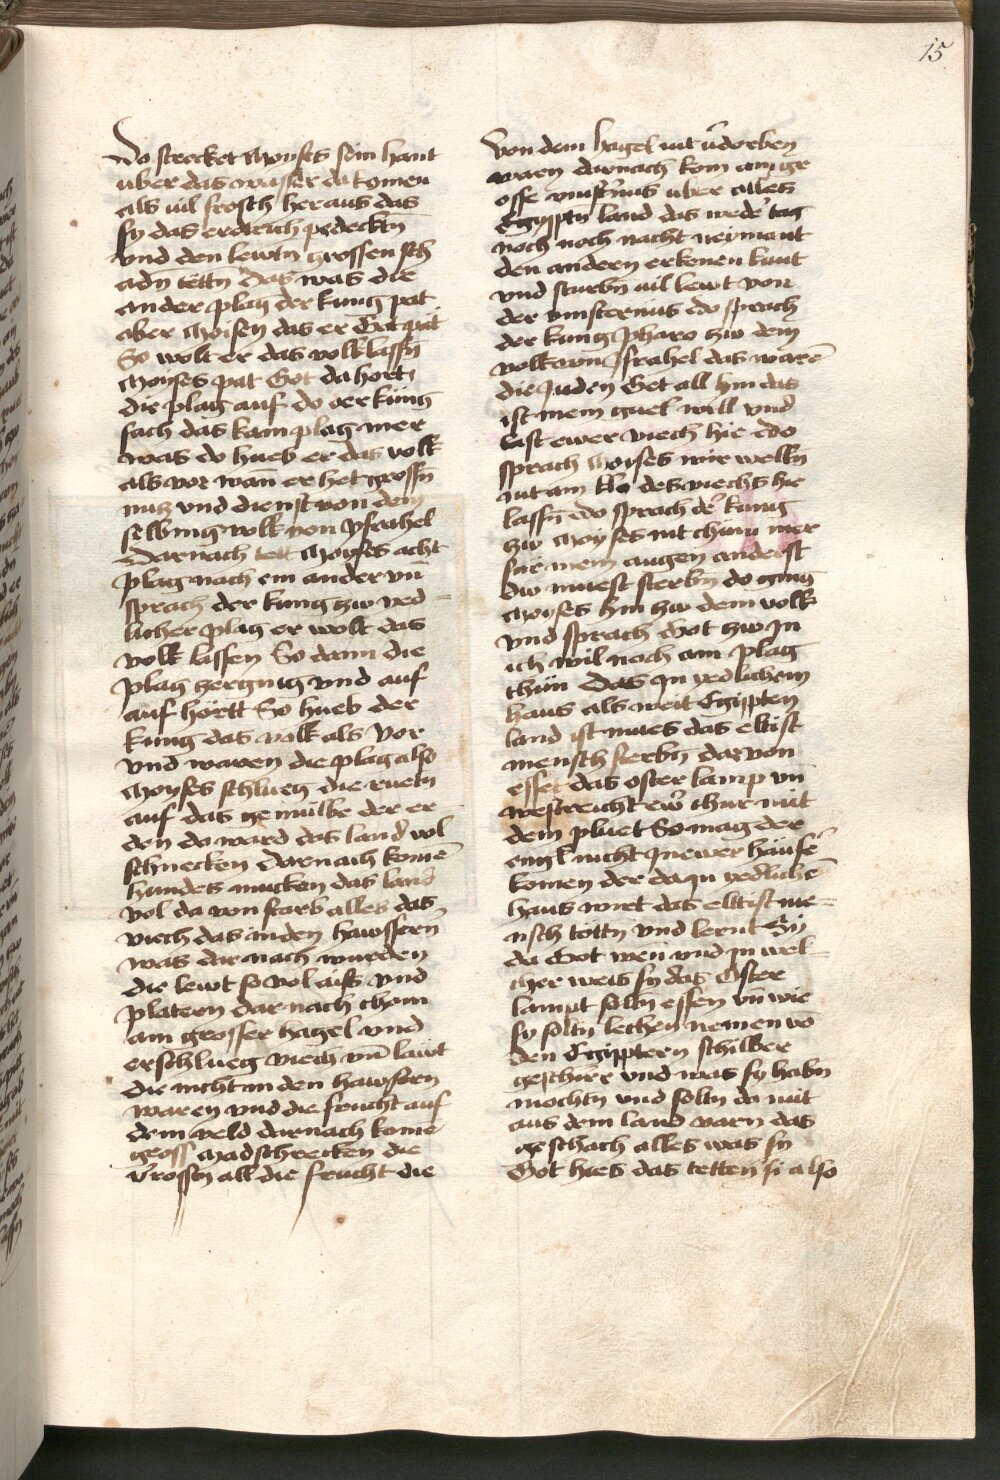 15
Do strecket Moyses sein hant
uber das wasser da komen
als uil frosch heraus das
sy das erdreich pedecktn̄
vnd den lewtn̄ grossen sch
adn̄ tettn̄ das was die
ander plag der kunig pat
aber Moisen das er Got pit
So wolt er das volk lassn̄
Moyses pat Got da hort
die plag auf do der kunig
sach das kain plag mer
was do hueb er das volk
als vor wan̄ er het grossn̄
nutz vnd dienst von dem
selbing volk von ysrahel
Darnach tett Moyses acht
plag nach ein ander vn̄
sprach der kung zw yed
licher plag er wolt das
volk lassen So dann die
plag zergieng vnd auf
auf hortt So hueb der
kung das volk als vor
vnd waren die plag also
Moyses schlueg die rueten
auf das gemulbe der er
den do ward das land vol
schnecken Darnach komē
hundes mucken das land
vol da von starb alles das
viech das in den hawssern
was dar nach wurden
die lewt so vol aiss vnd
platern dar nach cham
ain grosser hagel vnd
erschlueg viech vn̄ läut
die nicht in den hawsern
waren vnd die frucht auf
dem veld darnach komē
gross Madschrecken die
v̄rossn̄ all die frucht die
Von dem hagel nit v̄dorben
waren darnach kom ain gr
osse vinst̄nus uber alles
Egyptn̄ land das wed̄ tag
noch noch nacht neymant
den andern erkenen kunt
vnd sturbn̄ uil lewt von
der vinsternus do sprach
der kung Pharo zw dem
volk von Jsrahel das warē
die Juden Get all hin das
ist mein guet will vnd
last ewer viech hie do
sprach Moyses wir welln̄
nit ain klo des viechs hie
lassn̄ do sprach d̄ kung
zw Moyses nit chum mer
fur mein augen anderst
Du muest sterbn̄ do gieng
Moyses hin zw dem volk
vnd sprach Got zw Jn
ich wil noch ain plag
thun Das Jn yedlichem
haus als weit Egippten
land ist mues das eltist
mensch sterbn̄ dar von
esset das oster lamp vn̄
westreicht ew̄ thur mit
dem pluet So mag der
engl nicht Jn ewer häusē
komen der da Jn yedlichē
haus wirt das elltist me
nsch töttn̄ vnd lernt Sy
da Got wen vnd Jn wel
cher weis sy das Oster
lampt solln̄ essen vn̄ wie
sy soltn̄ lechen nemen vō
den Egipptern schilber
geschirr vnd was sy habn̄
mochtn̄ vnd soltn̄ da mit
aus dem land varn das
geschach alles was sy
Got hies das tetten si also